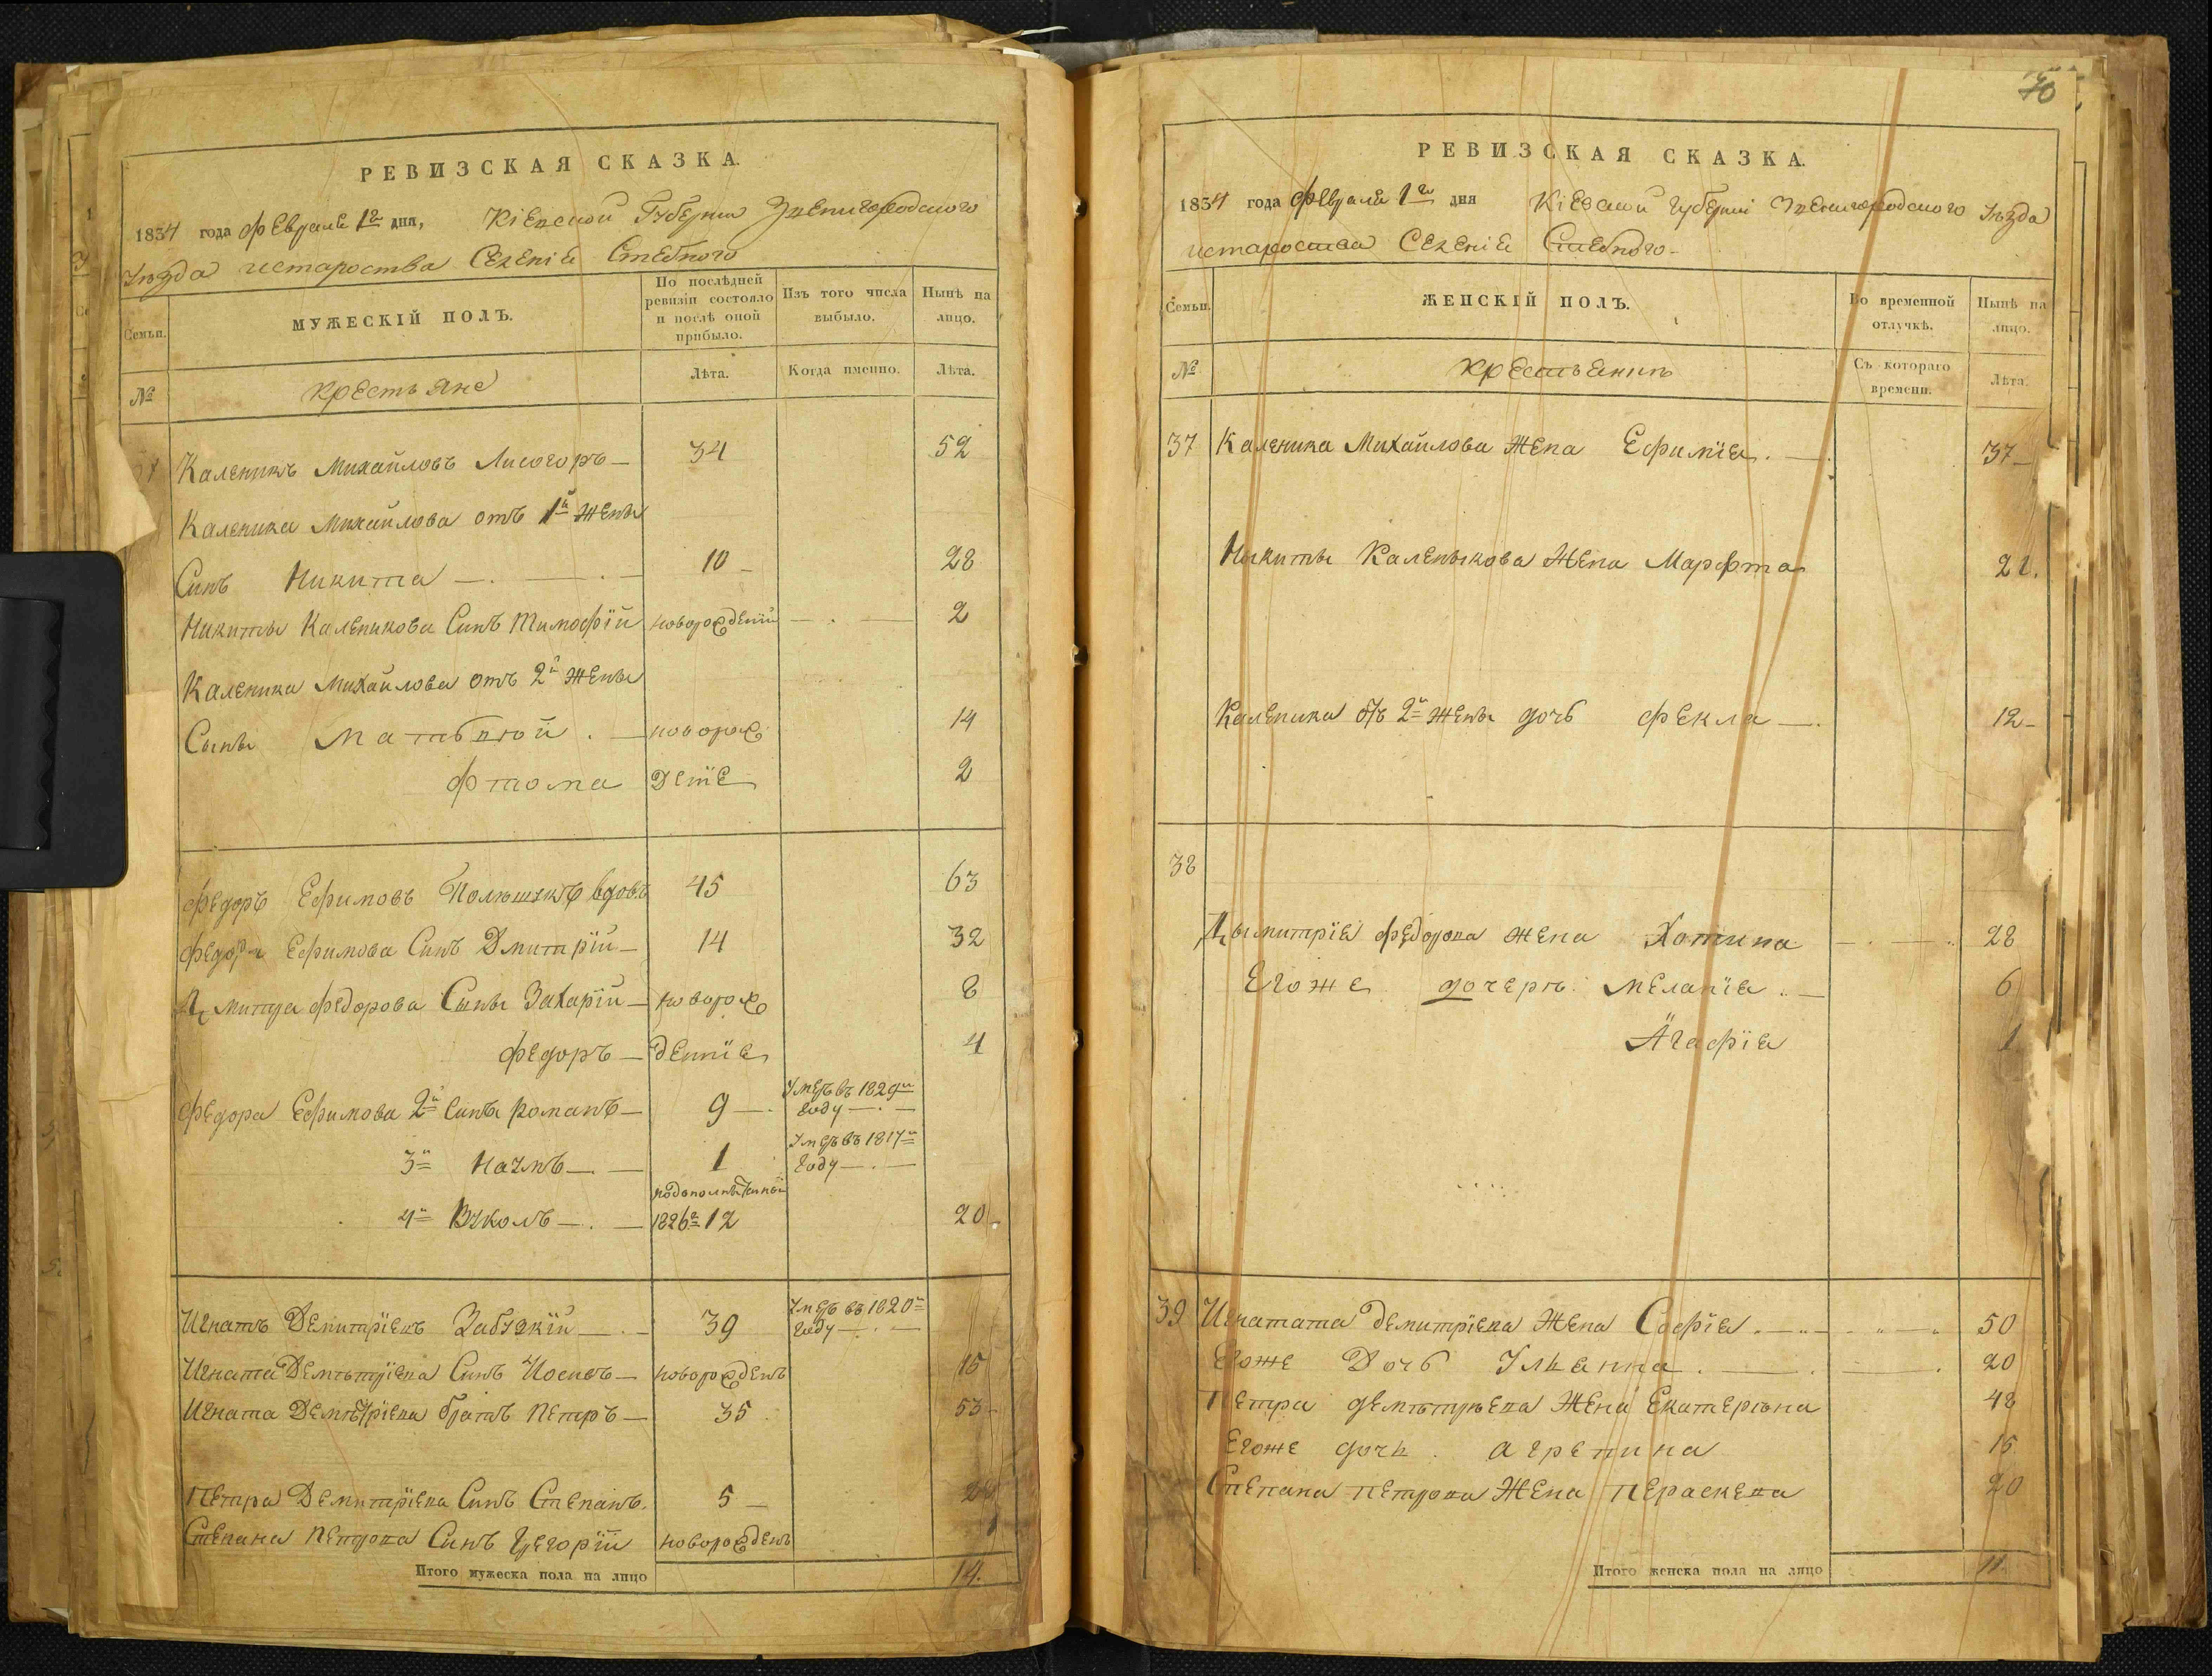 РЕВИЗСКАЯ СКАЗКА.
1834 года февраля 1го дня, Кіевской Губерніи Звенигородского
Уезда истароства Селенія Стебного
Семьи.
МУЖЕСКІЙ ПОЛЪ.
По послѣдней ревизіи состояло и послѣ оной прибыло.
Изъ того числа выбыло.
Нынѣ на лицо.
№
крестьяне
Лѣта.
Когда именно.
Лѣта.
Каленикъ Михайловъ Лисогоръ — 34 52
Каленика Михайлова отъ 1й Жены
Синъ Никита — 10 — 28
Никиты Каленикова Синъ Тимофій новорожденій — 2
Каленика Михайлова отъ 2й Жены
Сыны Матьвюй . — новорож 14
Фтома деніе 2
Федоръ Ефимовъ вдовъ 45 63
Федора Ефимова Синъ Дмитрій — 14 32
Дмитра Федорова Сыны Захарій — новорож 8
Федоръ — денніе 4
Федора Ефимова 2й Синъ Романъ — 9 — Умеръ въ 1829м
году —
3й Наумъ — 1 Умеръ въ 1817м
году —
4й Вуколъ — 1826г 12 20
Игнатъ Демитріевъ Забузкій — 39 Умеръ въ 1820м
году —
Игната Демитріева Синъ Иосивъ — новорожденъ 15
Игната Демитріева братъ Петръ — 35 53
Петра Демитріева Синъ Степанъ. 5 —
Степана Петрова Синъ Грегорій новорожденъ
Итого мужеска пола на лицо 14.
70
РЕВИЗСКАЯ СКАЗКА.
1834 года февраля 1го дня Кіевской Губерніи Звенигородского Уезда
истароства Селенія Стебного —
Семьи.
ЖЕНСКІЙ ПОЛЪ.
Во временной отлучкѣ.
Нынѣ на лицо.
№
Съ котораго времени.
Лѣта.
37 Каленика Михайлова Жена Ефимія . — 37 —
Никиты Каленыкова Жена Марфта 21.
Каленика отъ 2й Жены дочь Фекла — 12 —
38
Дымитрія Федорова жена Хотина — 28
Егоже дочеръ Меланія . — 6
Агафія 1
39 Игнатата Демитріева Жена Софія . — 50
Егоже Дочь Ульянна . — 20
Петра Жена Екатерына 48
Егоже дочь . Агрепина 15
Степана Петрова Жена Пераскева 20
Итого женска пола на лицо 11.